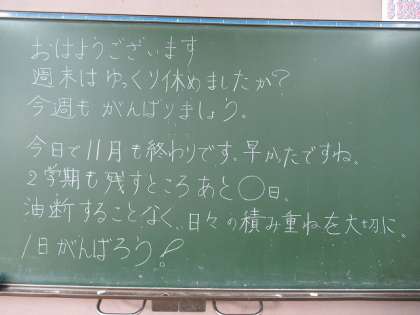 おはようございます
週末はゆっくり休めましたか?
今週もがんばりましょう。
今日で11月も終わりです。早かたですね。
2学期も残すところあと〇日。
油断することなく、日々の積み重ねを大切に。
1日がんばろう!